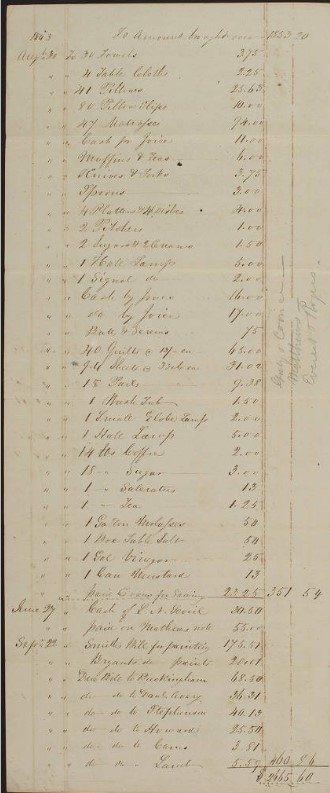 No 3 To Amount brought over 1853 20
Aug 30 To 30 Towels 3.75
" " 4 Table Cloths 2.25
" " 41 Pillows 25.63
" " 80 Pillow Slips 10.00
" " 47 Mattresses 94.00
" " Cash for Joice 11.00
" " Muffins & Teas 6.00
" " Knives & Forks 3.75
" " Spoons 3.00
" " 4 Platters 4.00
" " 2 Pitchers 1.00
" " 2 Sugars & 2 Creams 1.50
" " 1 Hall Lamp 5.00
" " 1 Signal do 2.00
" " Cash by Joice 16.00
" " do by Joice 17.00
" " Butts & Screws 75
" " 40 Quilts 65.00
" " 94 Sheets 31.02
" " 15 Pails 9.38
" " 1 Wash Tub 1.50
" " 1 Small Globe Lamp 2.00
" " 1 Hall Lamp 5.00
" " 14 lbs Coffee 2.00
" " 18 — Sugar 3.00
" " 1 — Saleratus 13
" " 1 — Tea 1.25
" " 1 Gallon Molasses 50
" " 1 Box Table Salt 50
" " 1 Gal Vinegar 25
" " 1 Can Mustard 13
" " paid for Sewing 23.25 351 54
June 27 " Cash of 30.50
" " paid on Mathews note 55.00
Sept 22 " Smiths Bill for painting 175.51
" " Bryants do paints 20.01
" " Due Bill to Buckingham 68.50
" " do do to 36.31
" " do do to Stephenson 40.13
" " do do to Howard 25.50
" " do do to Cams 3.81
" " do do Lamb 5.59 460 86
$ 2665 60